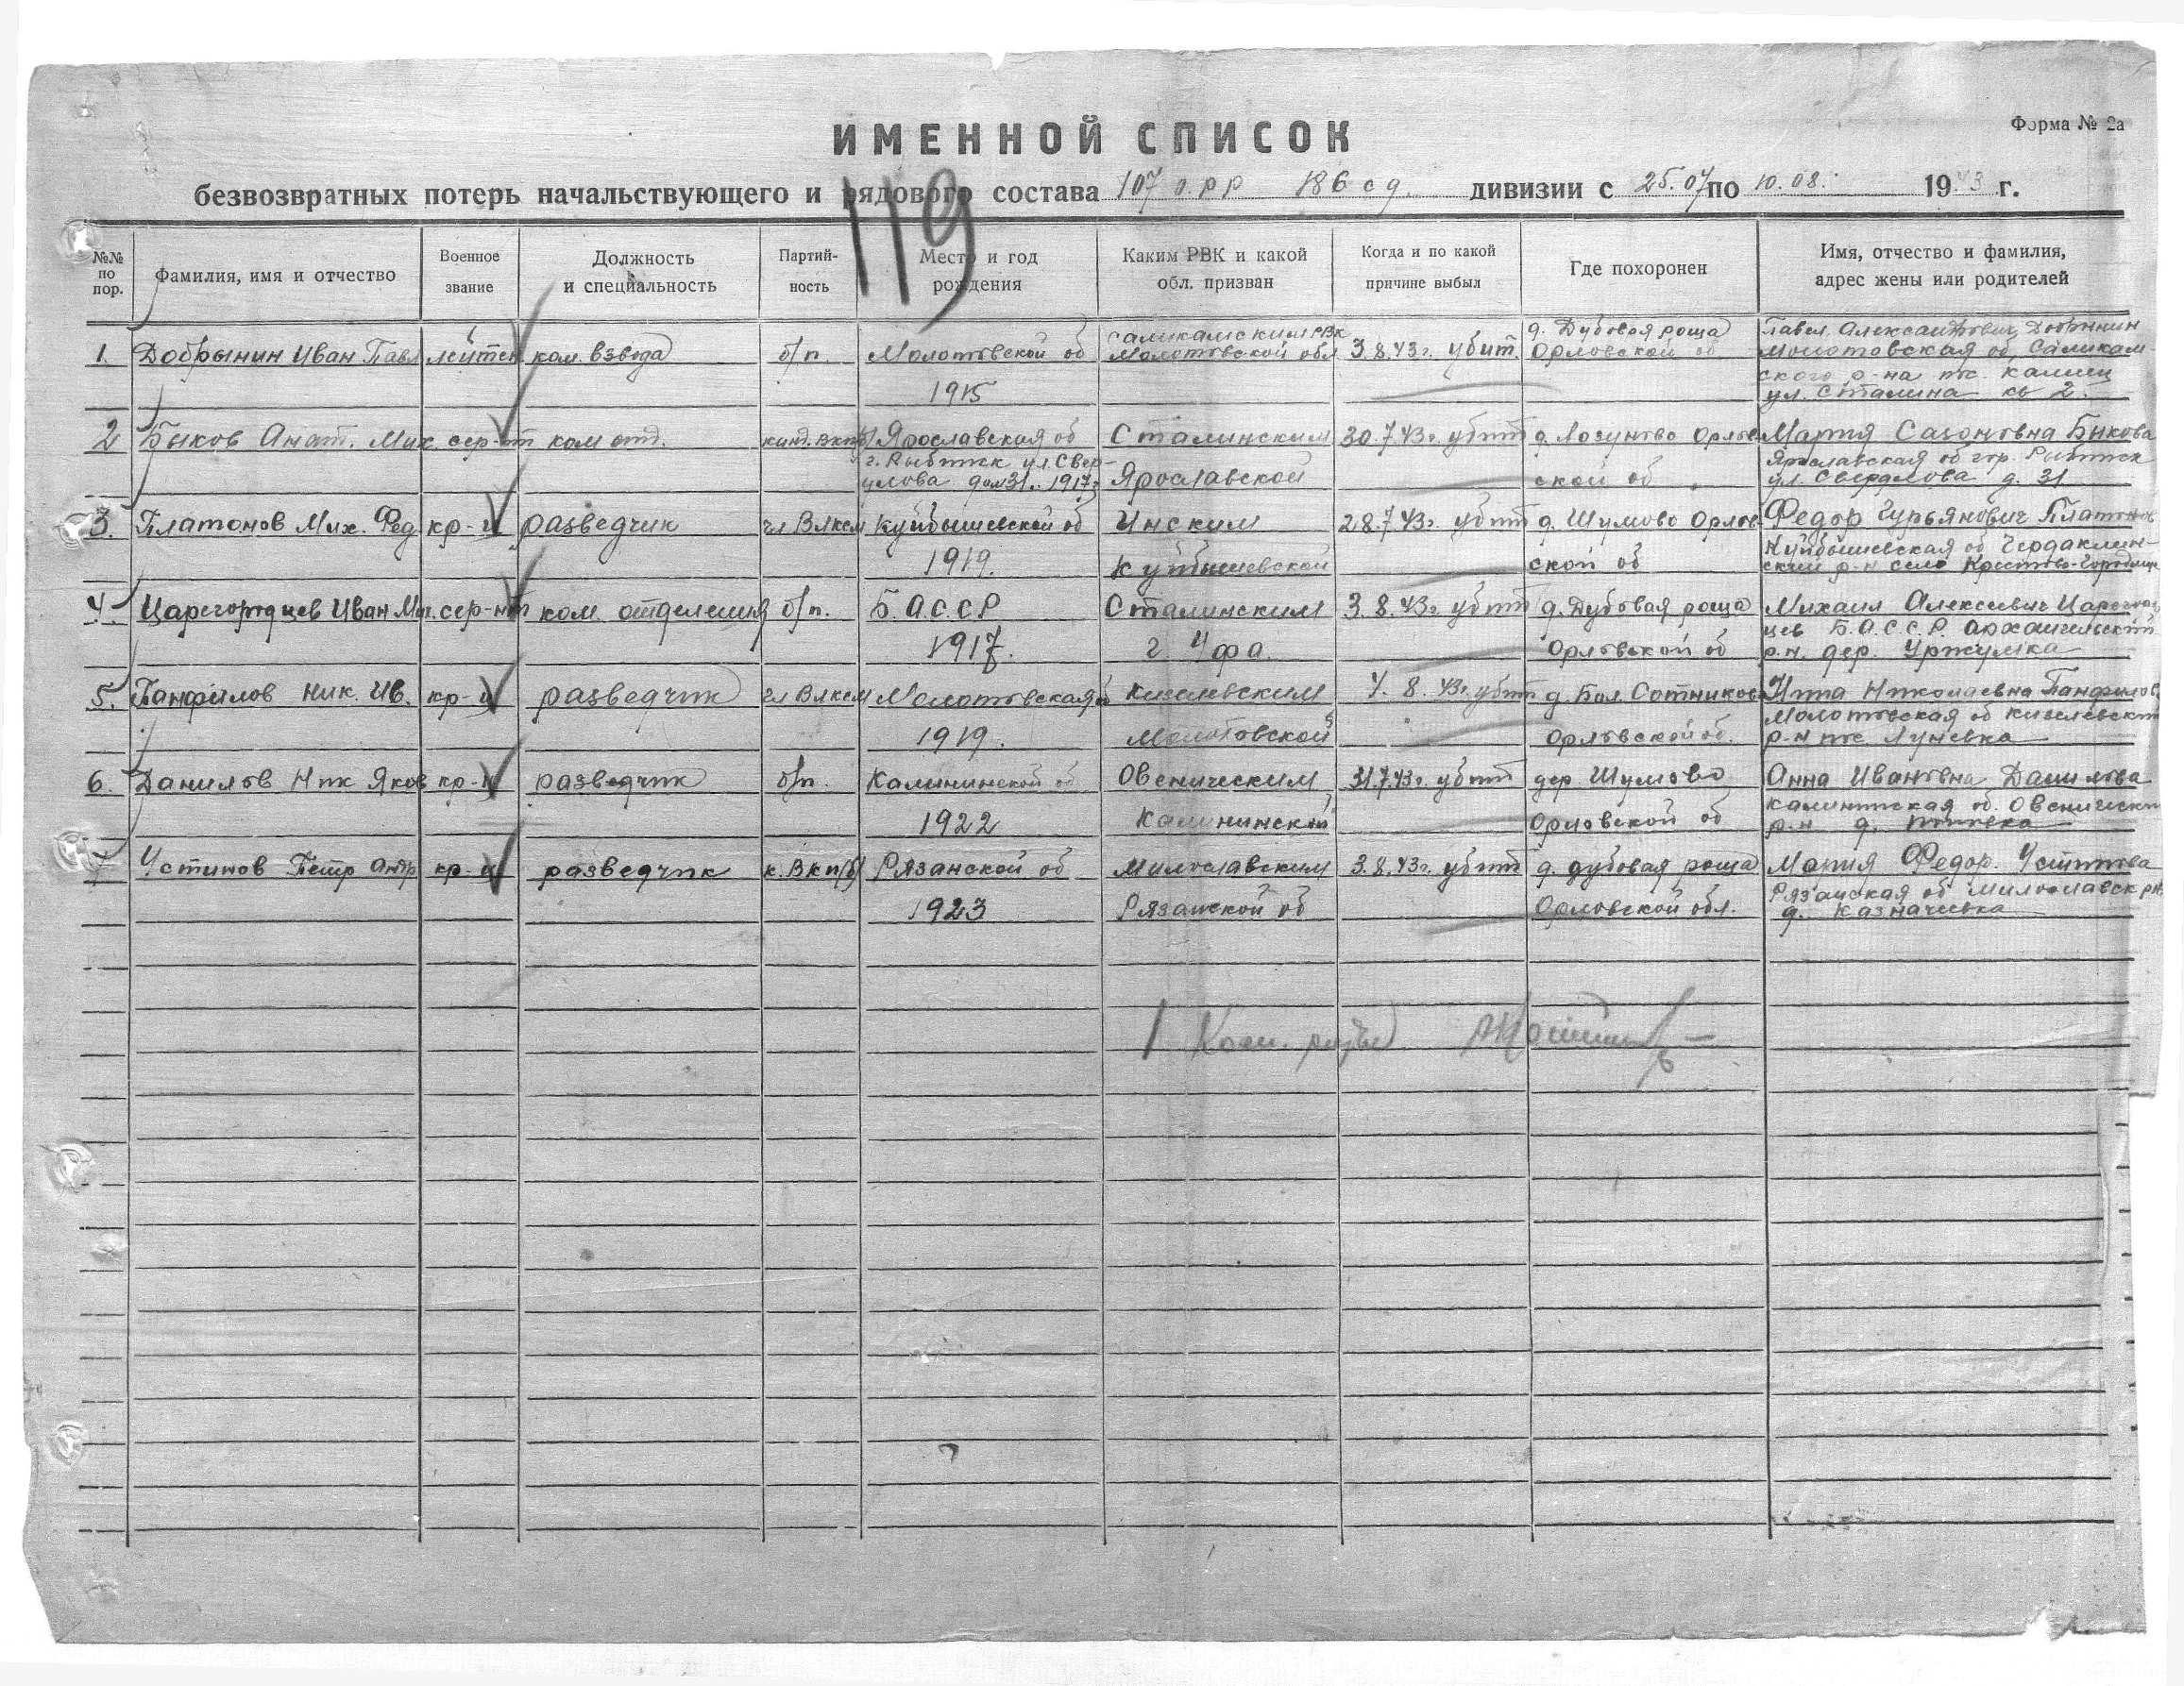 Форма № 2а
ИМЕННОЙ СПИСОК
безвозвратных потерь начальствующего и рядового состава 107 о.р.р 186 с д. дивизии с 25.07 по 10.08. 1943 г.
119
№№ по пор. Фамилия, имя и отчество Военное звание Должность и специальность Партий-ность Место и год рождения Каким РВК и какой обл. призван Когда и по какой причине выбыл Где похоронен Имя, отчество и фамилия, адрес жены или родителей
1. Добрынин Иван Павл лейтен ком. взвода б/п. Молотовской об 1915 Саликамским РВК Молотовской обл 3.8.43г. убит. д. Дубовая роща Орловской об Павел Александрович Добрынин
Молотовская об, Саликам-
ского р-на пос.
ул. Сталина кв 2.
2 Быков Анат. Мих. сер-нт ком отд. канд. вкп(б) Ярославская об Сталинским 30.7.43г. убит д. Лозуново Орлов- Мария Сазоновна Быкова
г. Рыбинск ул. Свер- Ярославская об гор. Рыбинск
длова дом 31. 1917г Ярославской ской об ул. Свердлова д. 31
3. Платонов Мих. Фед кр-ц разведчик чл Влксм Куйбышевской об Инским 28.7.43г. убит д. Шумово Орлов- Федор Гурьянович Платонов
1919. Куйбышевской ской об Куйбышевская об Чердаклин-
ский р-н село Крестово-Городище
4. Царегородцев Иван Мих. сер-нт ком. отделения б/п. Б.А.С.С.Р Сталинским 3.8.43г. убит д. Дубовая роща Михаил Алексеевич Царегород
1917. г. Уфа. Орловской об цев Б.А.С.С.Р. Архангельский
р.н. дер. Уржумка
5. Панфилов Ник. Ив. кр-ц разведчик чл Влксм Молотовская об Кизеловским 4. 8. 43г. убит д. Бол. Сотниково Нина Николаевна Панфилов
1919. Молотовской Орловской об. Молотовская об Кизеловский
р-н пос. Луневка
6. Данилов Ник Яков кр-ц разведчик б/п. Калининской об Овсеническим 31.7.43г. убит дер Шумово Анна Ивановна Данилова
1922 Калининской Орловской об Калининская об. Овсенический
р-н д.
7 Устинов Петр Андр кр-ц разведчик к. Вкп(б) Рязанской об Милославским 3.8.43г. убит д. дубовая роща Мария Федор. Устинова
1923 Рязанской об Орловской обл. Рязанская об Милославск р.н.
д. Казначеевка